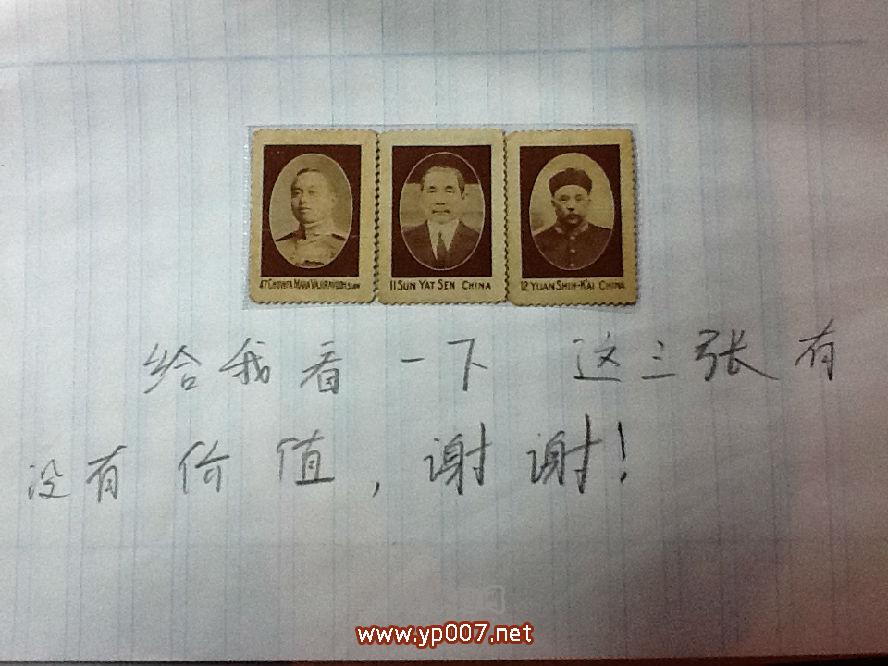 47 CHOWFA MAHA VAJIRAVUDH, SIAM
11 SUN YAT SEN CHINA
12 YUAN SHIH-KAI CHINA
给我看一下 这三张有
没有价值，谢谢！
www.yp007.net